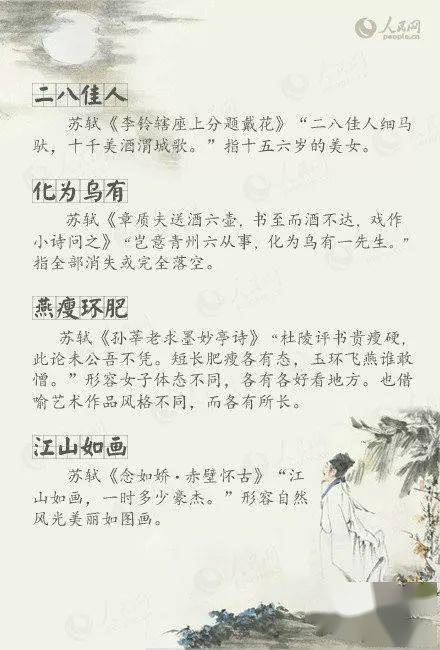 人民网
people.cn
二八佳人
苏轼《李铃辖座上分题戴花》“二八佳人细马
驮，十千美酒渭城歌。”指十五六岁的美女。
化为乌有
苏轼《章质夫送酒六壶，书至而酒不达，戏作
小诗问之》“岂意青州六从事，化为乌有一先生。”
指全部消失或完全落空。
燕瘦环肥
苏轼《孙莘老求墨妙亭诗》“杜陵评书贵瘦硬，
此论未公吾不凭。短长肥瘦各有态，玉环飞燕谁敢
憎。”形容女子体态不同，各有各好看地方。也借
喻艺术作品风格不同，而各有所长。
江山如画
苏轼《念如娇·赤壁怀古》“江
山如画，一时多少豪杰。”形容自然
风光美丽如图画。